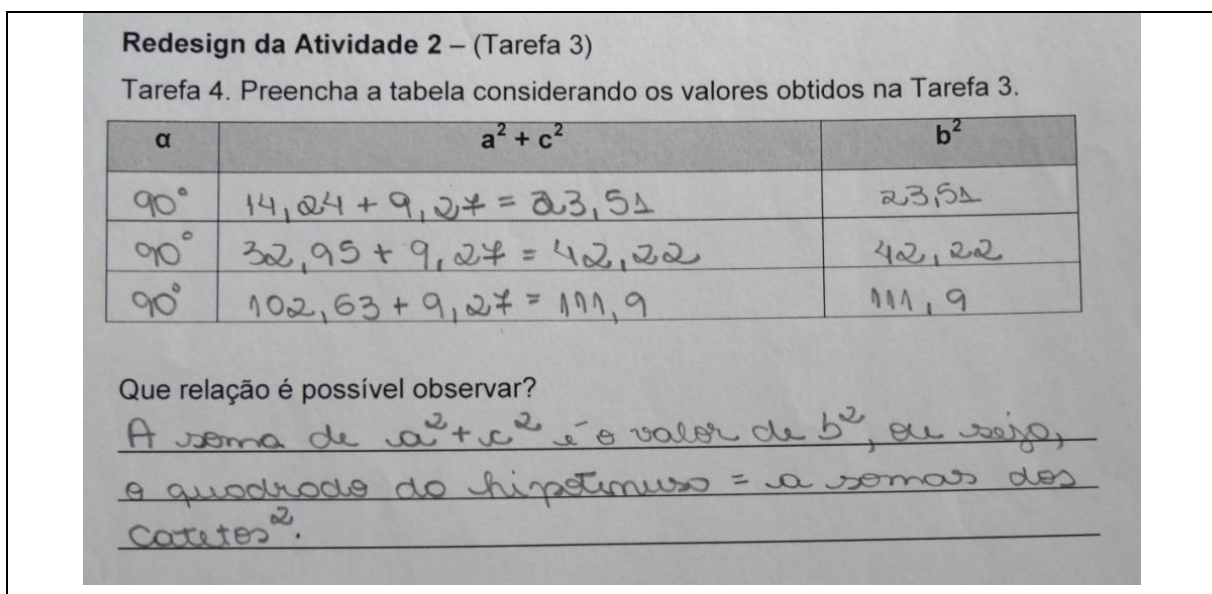 Redesign da Atividade 2 – (Tarefa 3)
Tarefa 4. Preencha a tabela considerando os valores obtidos na Tarefa 3.
α a² + c² b²
90° 14,24 + 9,27 = 23,51 23,51
90° 32,95 + 9,27 = 42,22 42,22
90° 102,63 + 9,27 = 111,9 111,9
Que relação é possível observar?
A soma de a²+c² é o valor de b², ou seja,
o quadrado da hipotenusa = a somas dos
catetos².